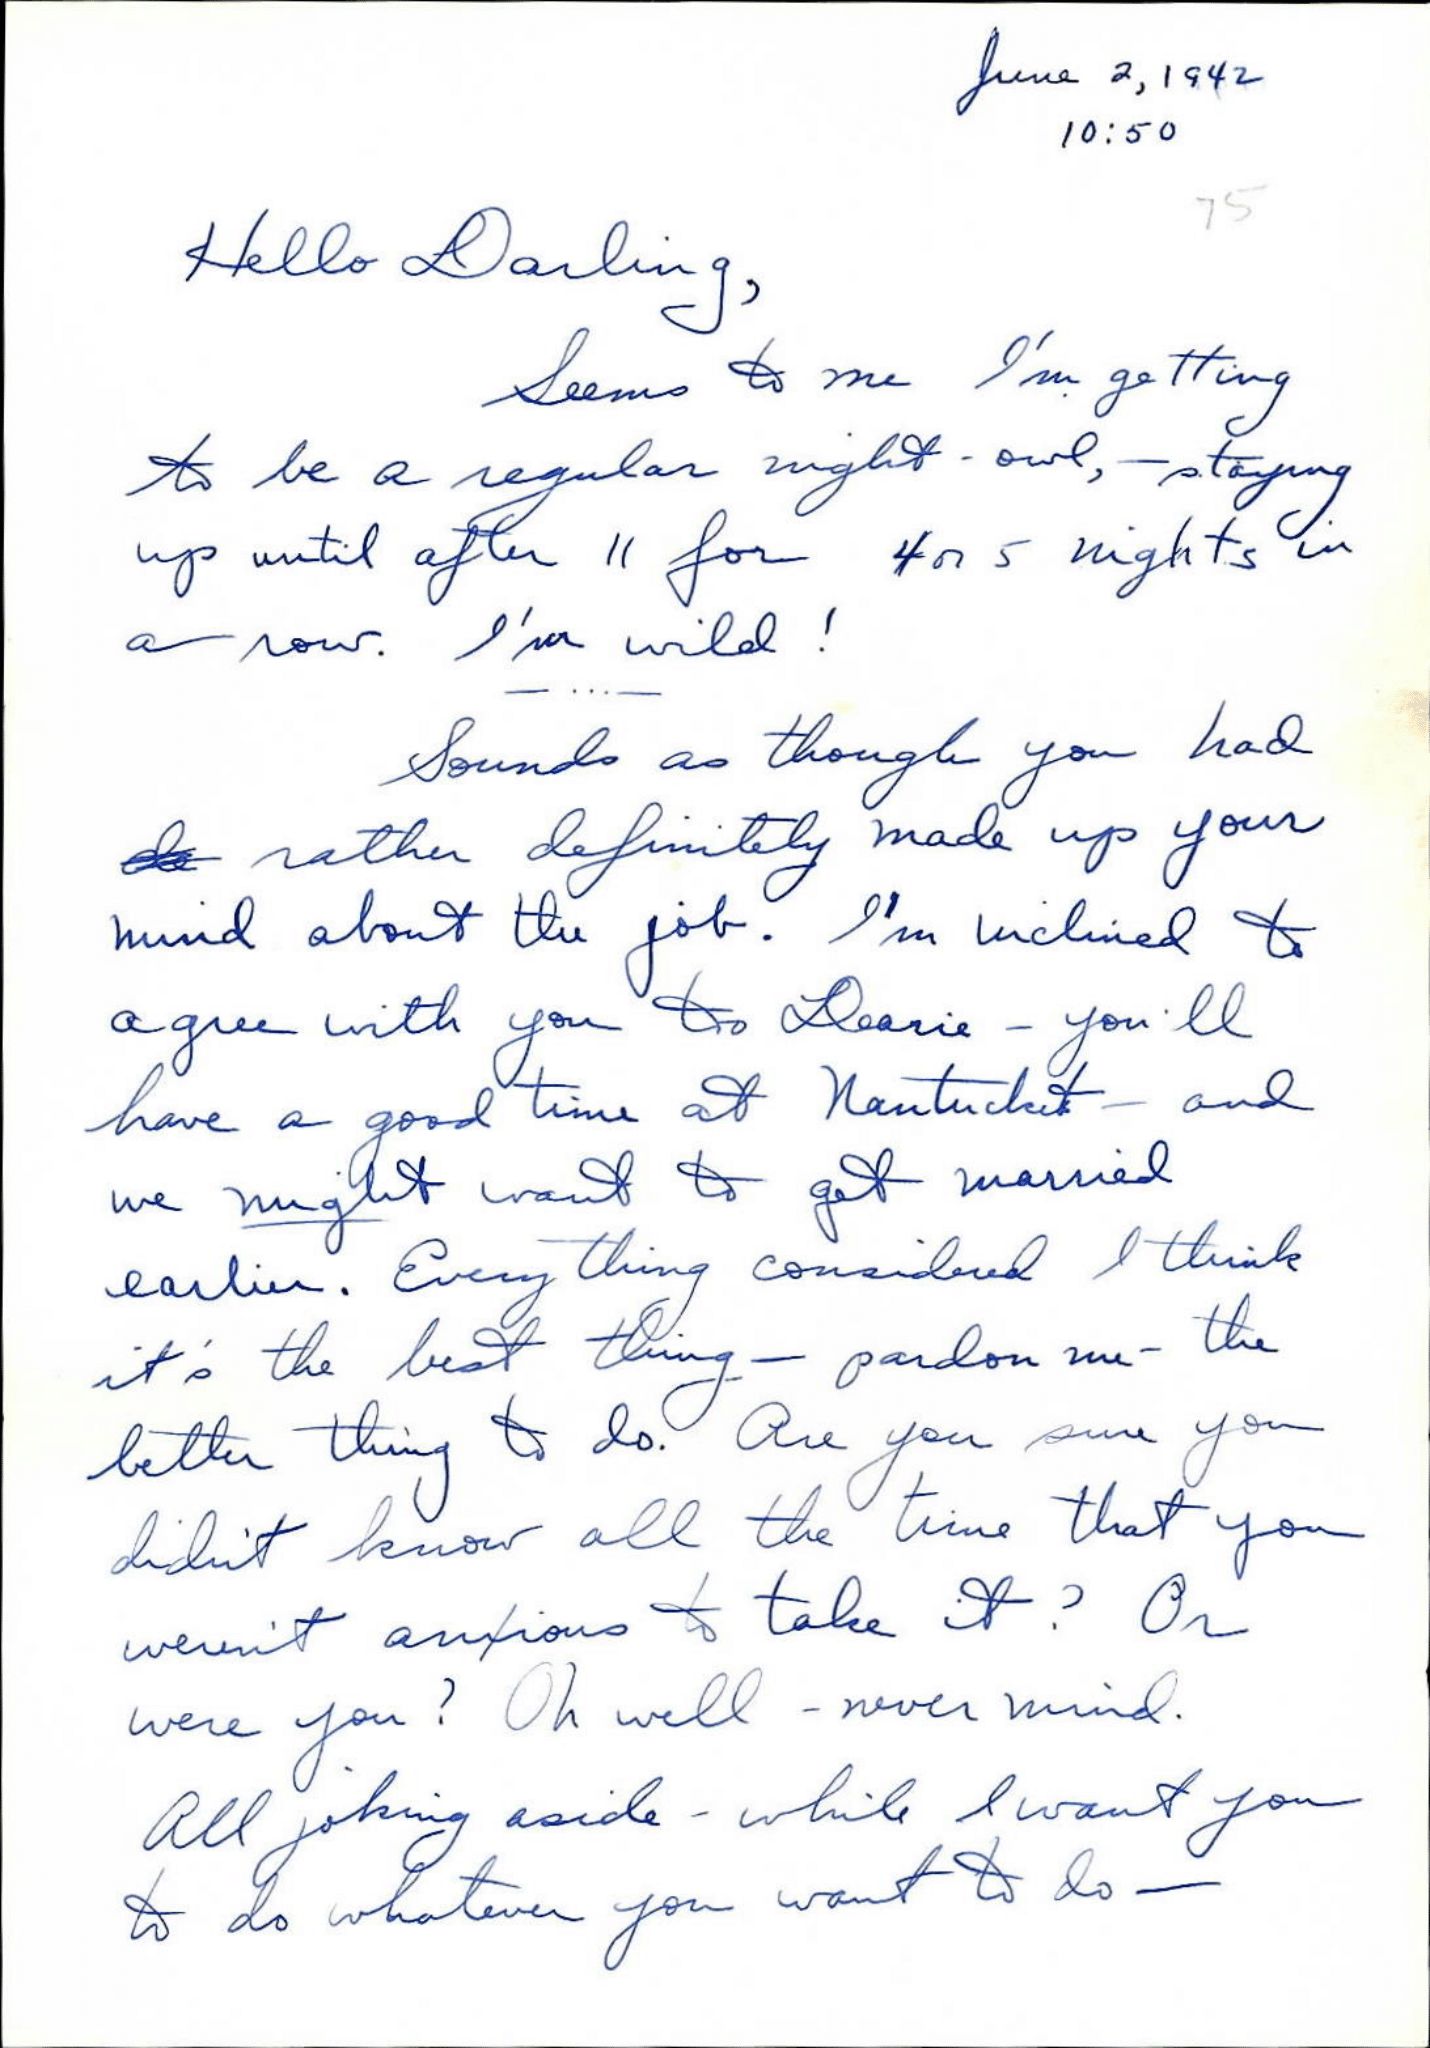 June 2, 1942
10:50
75
Hello Darling,
Seems to me I'm getting
to be a regular night-owl, — staying
up until after 11 for 4 or 5 nights in
a — row. I'm wild!
— ... —
Sounds as though you had
de rather definitely made up your
mind about the job. I'm inclined to
agree with you too Dearie — you'll
have a good time at Nantucket — and
we might want to get married
earlier. Everything considered I think
it's the best thing — pardon me — the
better thing to do. Are you sure you
didn't know all the time that you
weren't anxious to take it? Or
were you? Oh well — never mind.
All joking aside — while I want you
to do whatever you want to do —